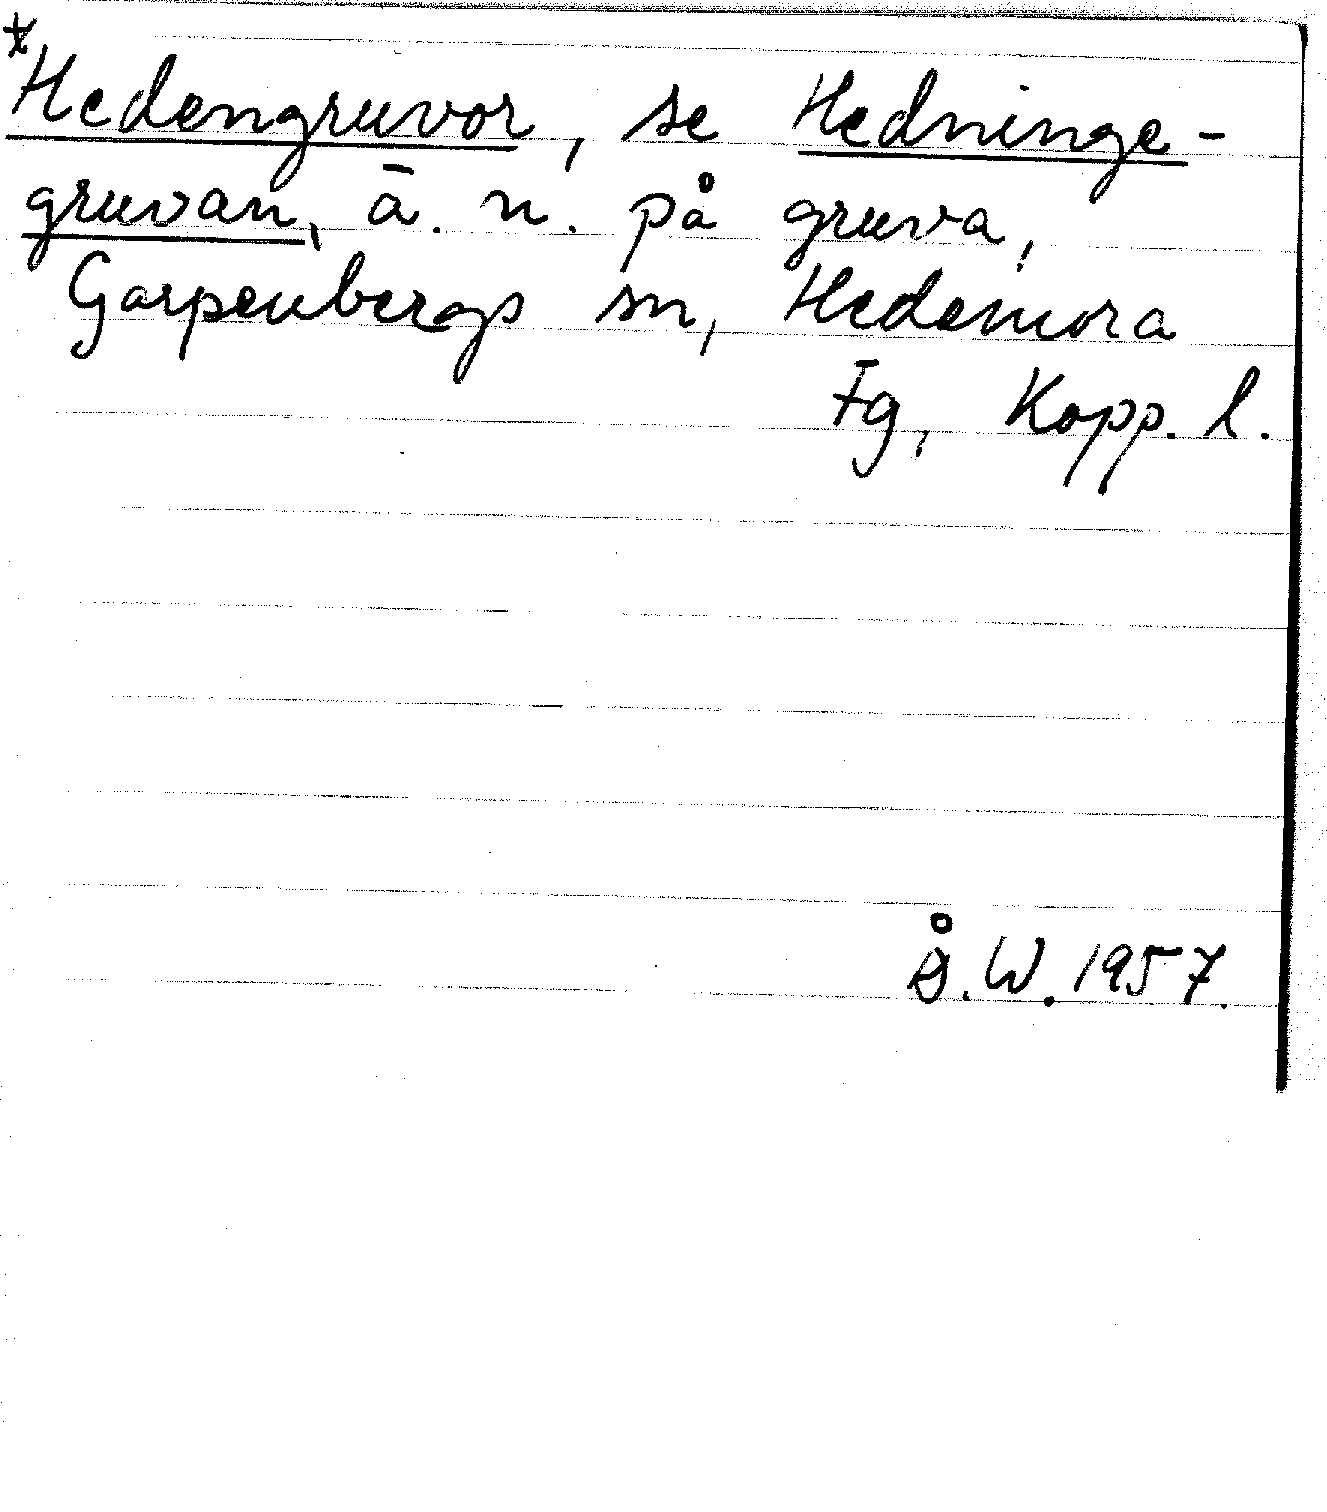 *Hedengruvor, se Hedninge-
gruvan, ä. n. på gruva,
Garpenbergs sn, Hedemora
Fg, Kopp. l.
Å.W. 1957.